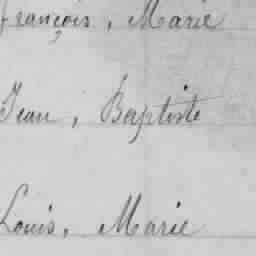 françois, Marie
Jean, Baptiste
Louis, Marie